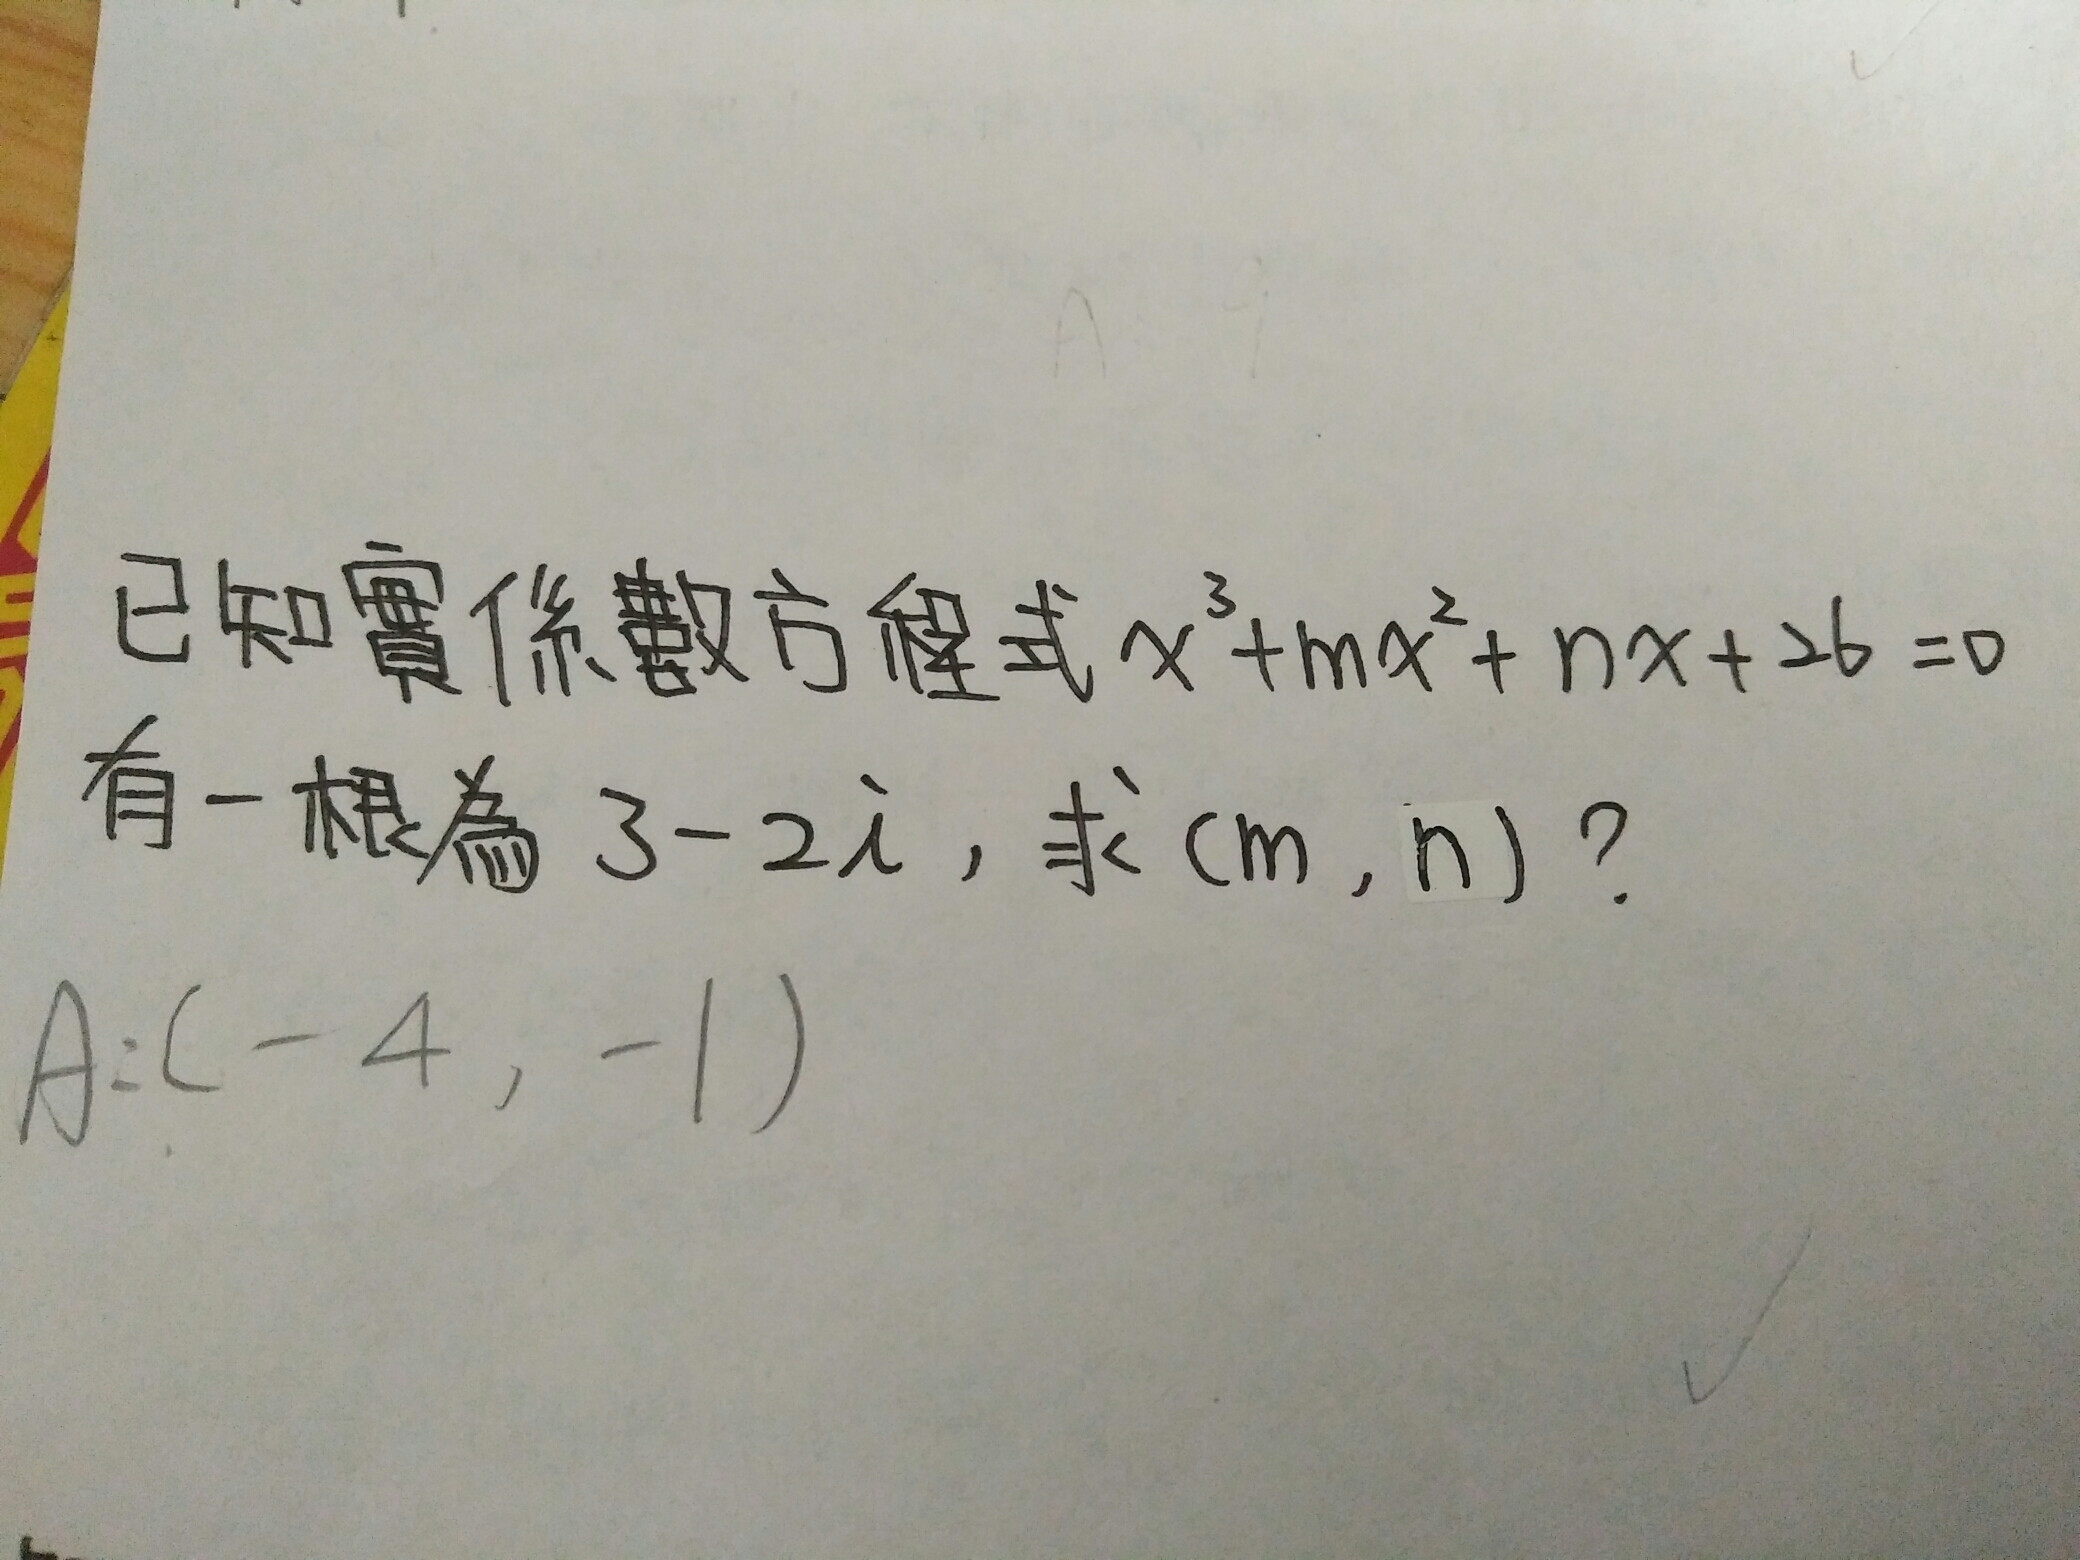 已知實係數方程式 x³+mx²+nx+26=0
有一根為 3-2i，求(m,n)？
A:(-4,-1)